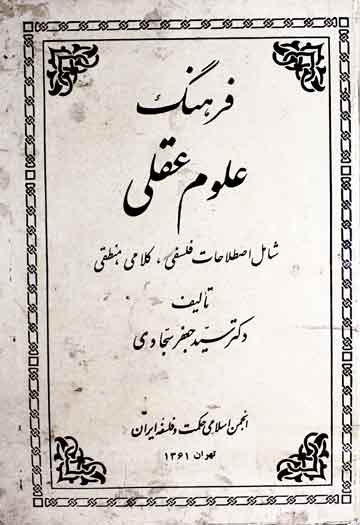 فرهنگ
علوم عقلی
شامل اصطلاحات فلسفی، کلامی، منطقی
تألیف
دکتر سید جعفر سجادی
انجمن اسلامی حکمت و فلسفه ایران
تهران ۱۳۶۱